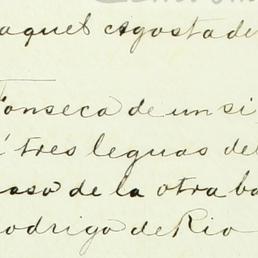 aquel agostade
Fonseca de un si
í tres leguas de
caso de la otra ba
Rodrigo de Rio